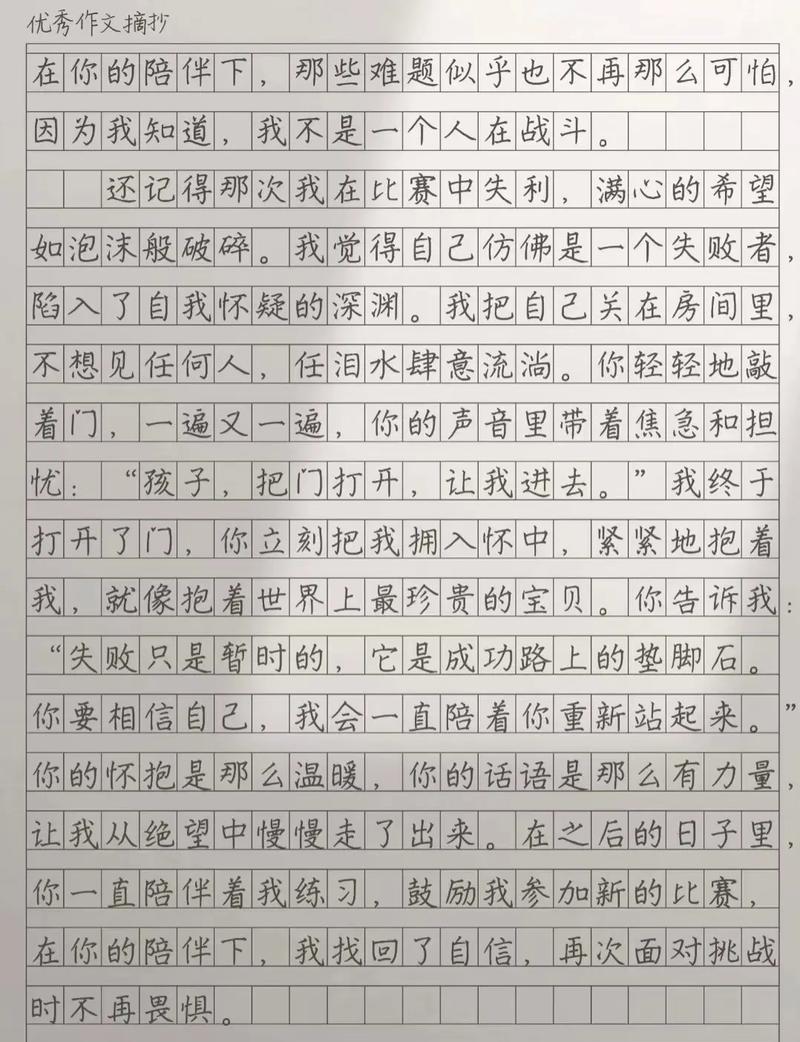 优秀作文摘抄
在你的陪伴下，那些难题似乎也不再那么可怕，
因为我知道，我不是一个人在战斗。
还记得那次我在比赛中失利，满心的希望
如泡沫般破碎。我觉得自己仿佛是一个失败者，
陷入了自我怀疑的深渊。我把自己关在房间里，
不想见任何人，任泪水肆意流淌。你轻轻地敲
着门，一遍又一遍，你的声音里带着焦急和担
忧：“孩子，把门打开，让我进去。”我终于
打开了门，你立刻把我拥入怀中，紧紧地抱着
我，就像抱着世界上最珍贵的宝贝。你告诉我：
“失败只是暂时的，它是成功路上的垫脚石。
你要相信自己，我会一直陪着你重新站起来。”
你的怀抱是那么温暖，你的话语是那么有力量，
让我从绝望中慢慢走了出来。在之后的日子里，
你一直陪伴着我练习，鼓励我参加新的比赛，
在你的陪伴下，我找回了自信，再次面对挑战
时不再畏惧。